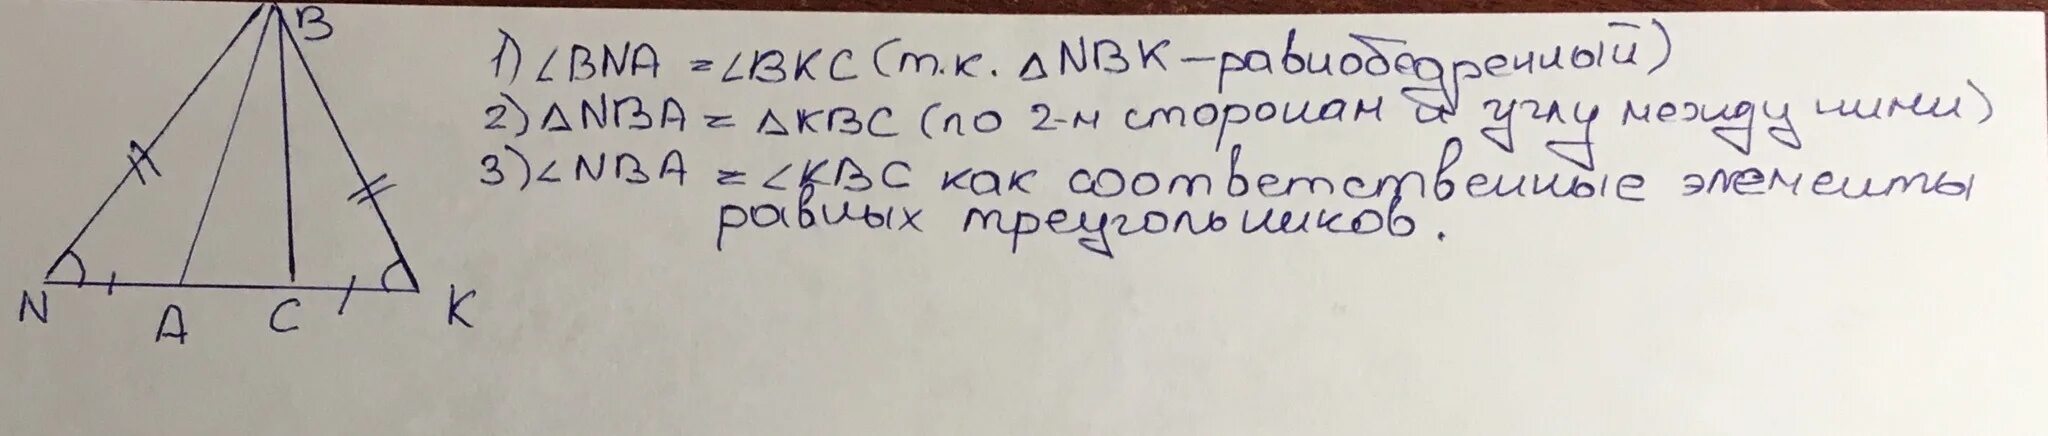 B
1) ∠BNA = ∠BKC (т.к. △NBK – равнобедренный)
2) △NBA = △KBC (по 2-м сторонам и углу между ними)
3) ∠NBA = ∠KBC как соответственные элементы
равных треугольников.
N A C K